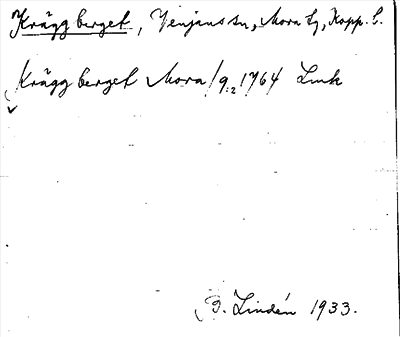 Kräggberget, Venjans sn, Mora tg, Kopp. l.
Kräggberget Mora/9:2 1764 Lmk
B. Lindén 1933.